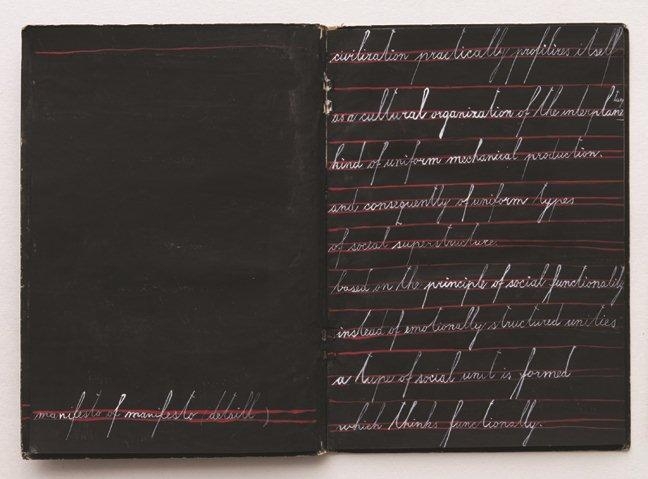 manifesto of manifesto (detsill)
civilization practically profilizes itself
as a cultural organization of the interplanetary
kind of uniform mechanical production.
and consequently of uniform types
of social superstructure.
based on the principle of social functionality
instead of emotionally structured unities
a type of social unit is formed
which thinks functionally.